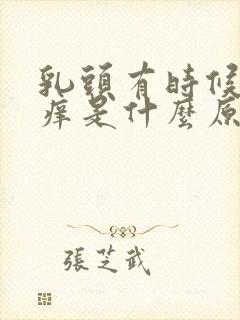 乳頭有時候
痒是什麼原
張芝武